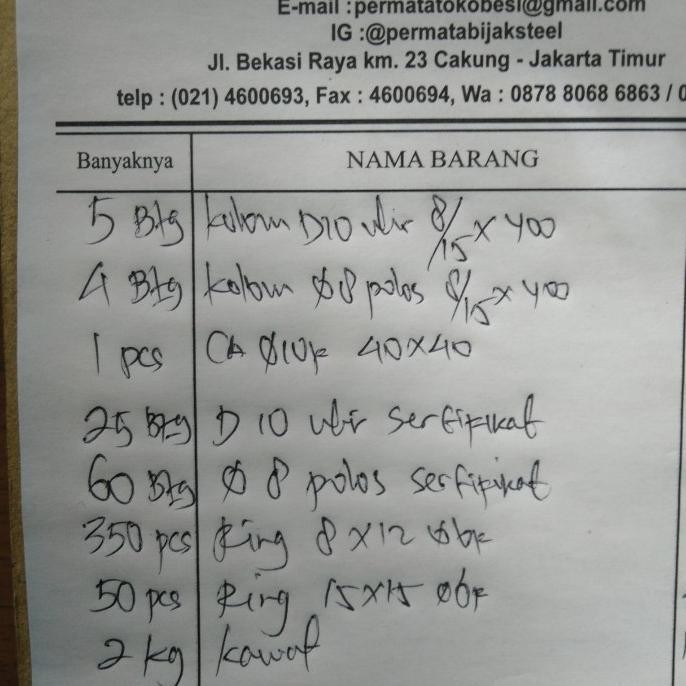 E-mail :permatatokobesi@gmail.com
IG :@permatabijaksteel
Jl. Bekasi Raya km. 23 Cakung - Jakarta Timur
telp : (021) 4600693, Fax : 4600694, Wa : 0878 8068 6863 / 0
Banyaknya NAMA BARANG
5 Btg kolom D10 ulir 8/15 x 400
4 Btg kolom Ø8 polos 8/15 x 400
1 pcs CA Ø10k 40x40
25 Btg D 10 ulir sertifikat
60 Btg Ø 8 polos sertifikat
350 pcs Ring 8x12 Ø6k
50 pcs Ring 15x15 Ø6k
2 kg kawat